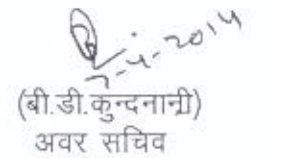 7-4-2014
(बी.डी.कुन्दनानी)
अवर सचिव